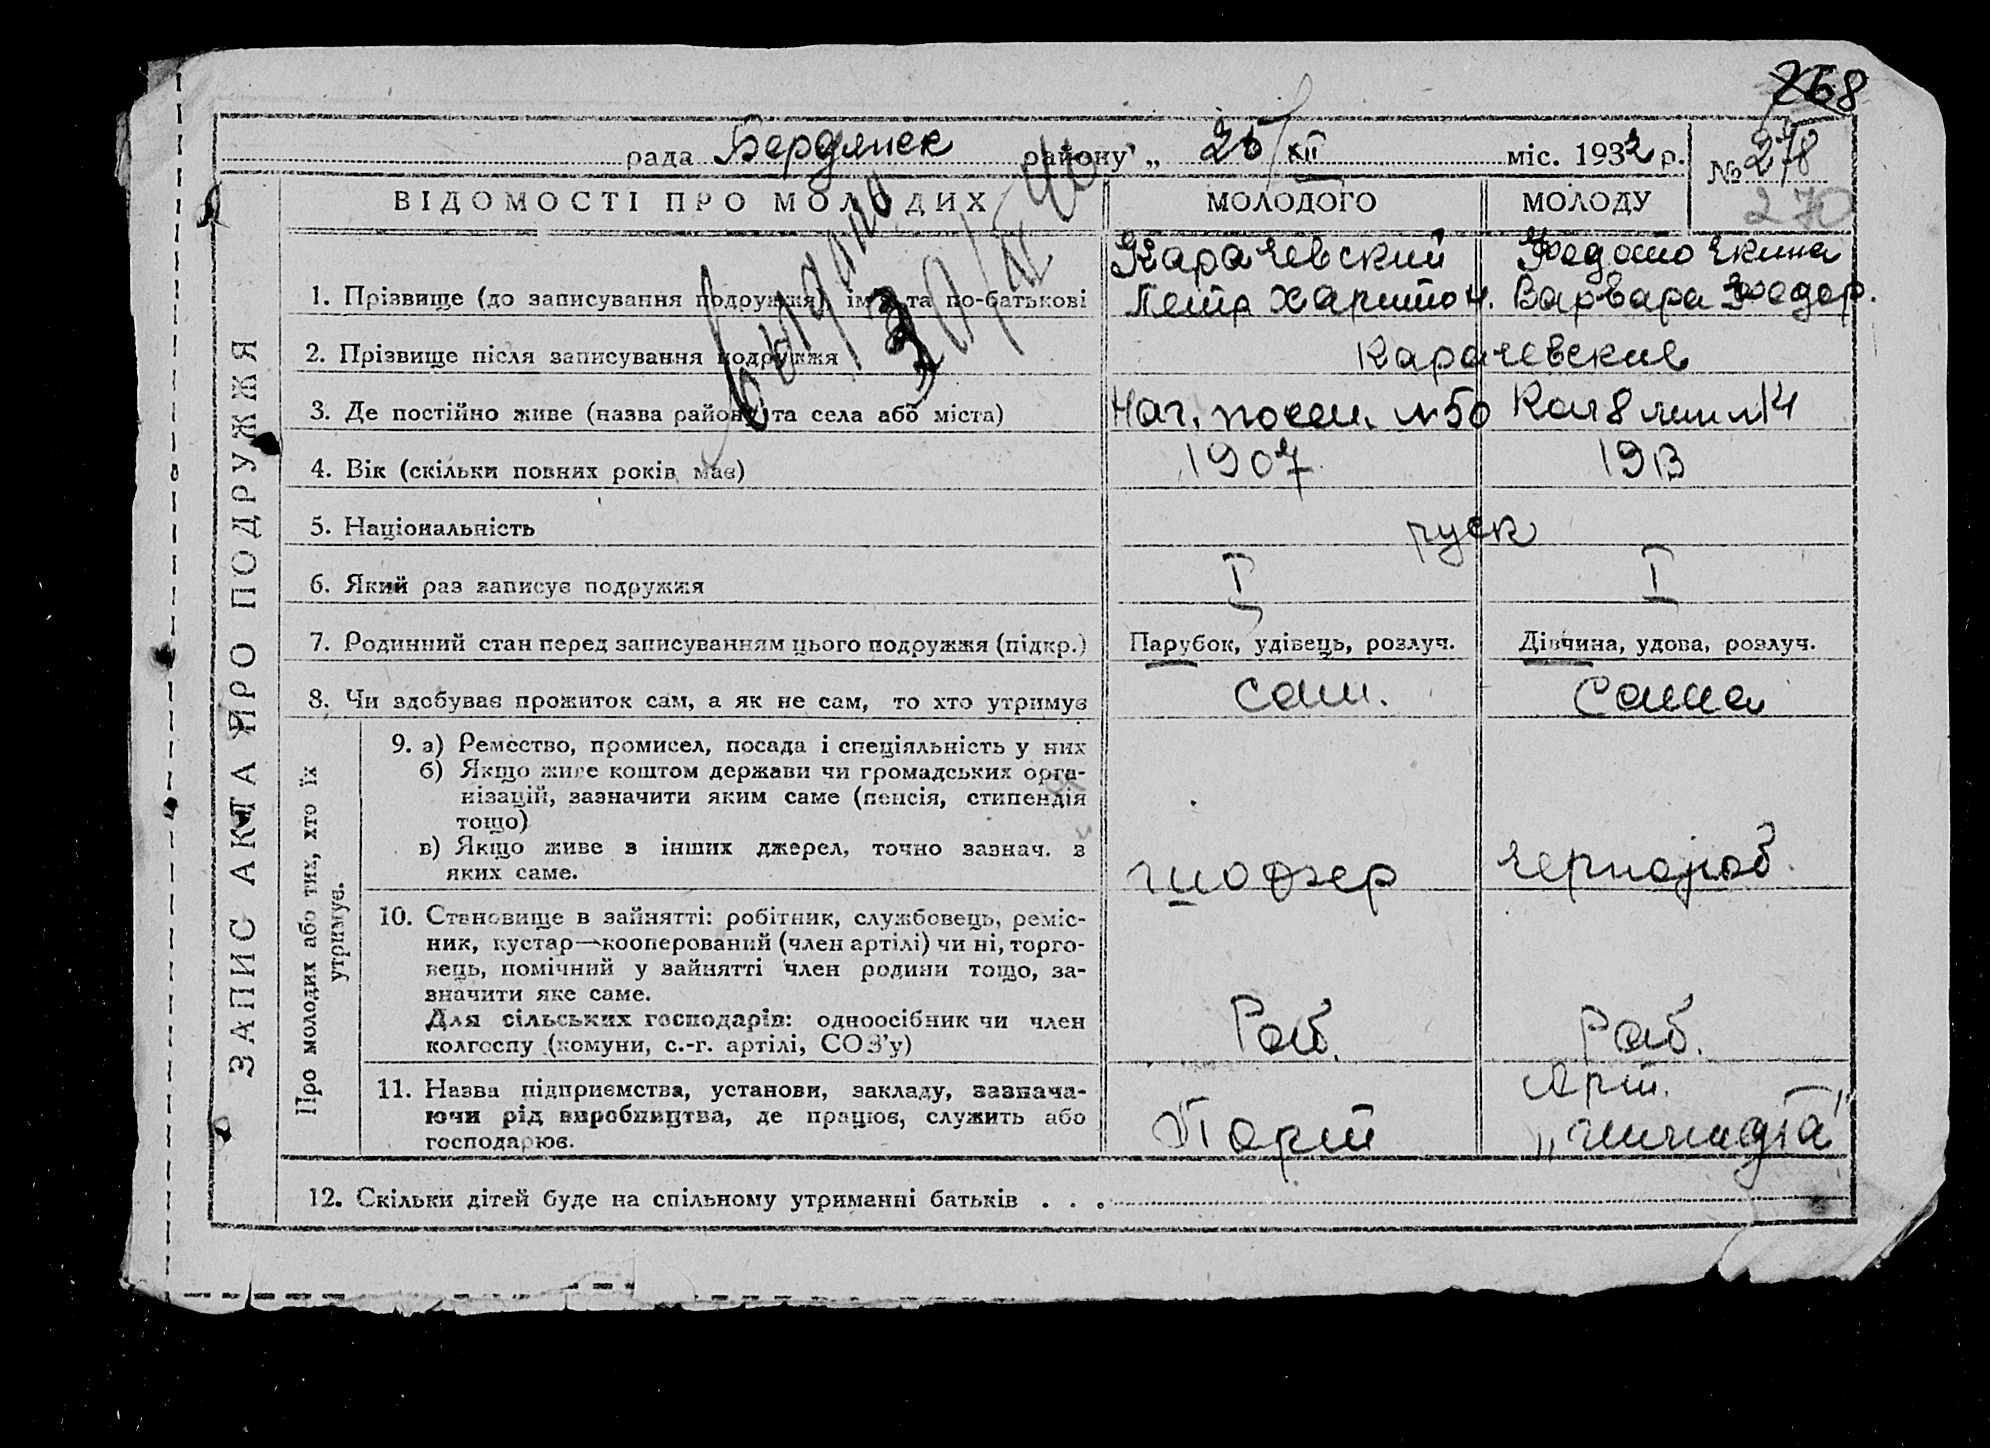 268
рада Бердянск району „ 26/XII міс. 1932 р. № 278
270
ВІДОМОСТІ ПРО МОЛОДИХ МОЛОДОГО МОЛОДУ
ЗАПИС АКТА ПРО ПОДРУЖЖЯ
1. Прізвище (до записування подружжя) ім'я та по-батькові
Карачевский
Петр Харитон.
Варвара Федор.
2. Прізвище після записування подружжя Карачевские
3. Де постійно живе (назва району та села або міста) Наг. посел. №50
4. Вік (скільки повних років має) 1907 1913
5. Національність руск
6. Який раз записує подружжя I I
7. Родинний стан перед записуванням цього подружжя (підкр.) Парубок, удівець, розлуч. Дівчина, удова, розлуч.
8. Чи здобуває прожиток сам, а як не сам, то хто утримує сам. Сама
Про молодих або тих, хто їх
утримує.
9. а) Ремество, промисел, посада і спеціяльність у них
б) Якщо живе коштом держави чи громадських орга-
нізацій, зазначити яким саме (пенсія, стипендія
тощо)
в) Якщо живе з інших джерел, точно зазнач. з
яких саме.
шофер чернораб.
10. Становище в зайнятті: робітник, службовець, реміс-
ник, кустар—кооперований (член артілі) чи ні, торго-
вець, помічний у зайнятті член родини тощо, за-
значити яке саме.
Для сільських господарів: одноосібник чи член
колгоспу (комуни, с.-г. артілі, СОЗ'у)
Раб. Раб.
11. Назва підприємства, установи, закладу, зазнача-
ючи рід виробництва, де працює, служить або
господарює.
Порт
Арт.
12. Скільки дітей буде на спільному утриманні батьків . . .